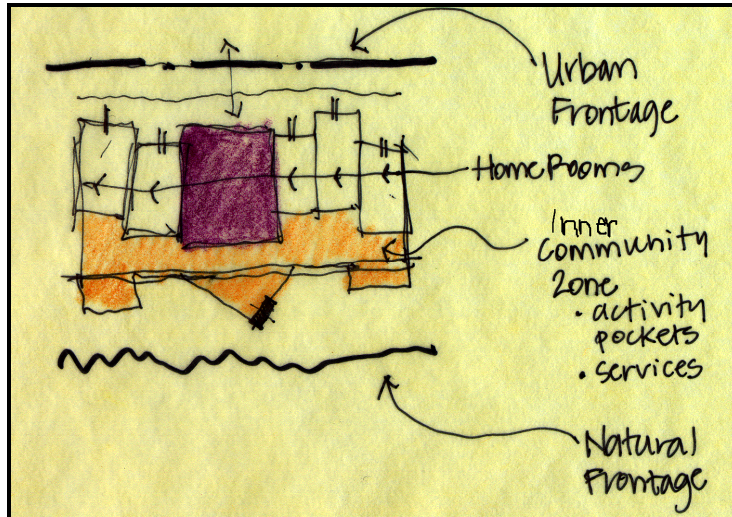 Urban
Frontage
HomeRooms
Inner
Community
Zone
• activity
pockets
• services
Natural
Frontage